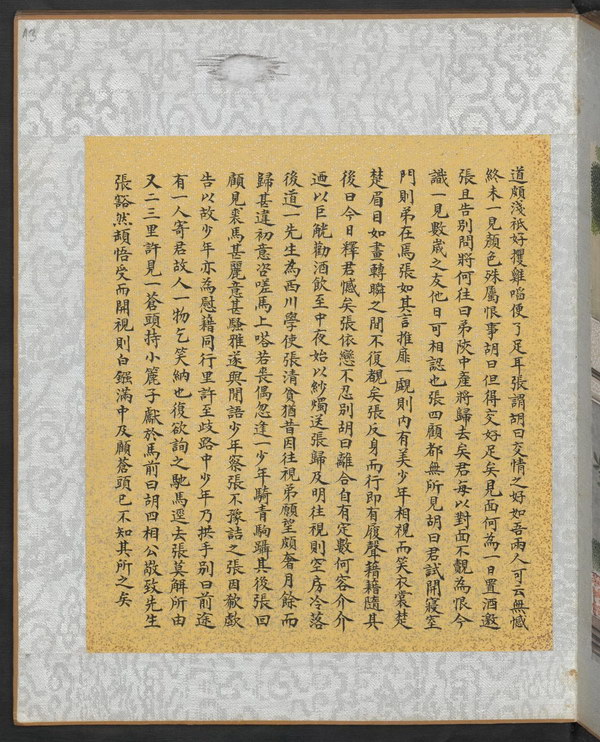 道頗淺祗好攫雞啗便了足耳張謂胡曰交情之好如吾兩人可云無憾
終未一見顏色殊屬恨事胡曰但得交好足矣見面何為一日置酒邀
張且告別問將何往曰弟陝中產將歸去矣君每以對面不覿為恨今
識一見數歲之友他日可相認也張四顧都無所見胡曰君試開寢室
門則弟在焉張如其言推扉一覷則内有美少年相視而笑衣裳楚
楚眉目如畫轉瞬之間不復覩矣張反身而行即有履聲藉藉隨其
後曰今日釋君憾矣張依戀不忍別胡曰離合自有定數何容介介
迺以巨觥勸酒飲至中夜始以紗燭送張歸及明往視則空房冷落
後道一先生為西川學使張清貧猶昔因往視弟願望頗奢月餘而
歸甚違初意咨嗟馬上嗒若喪偶忽逢一少年騎青駒躡其後張回
顧見裘馬甚麗意甚騷雅遂與閒語少年察張不豫詰之張因欷歔
告以故少年亦為慰藉同行里許至歧路中少年乃拱手別曰前途
有一人寄君故人一物乞笑納也後欲詢之馳馬逕去張莫解所由
又二三里許見一蒼頭持小簏子獻於馬前曰胡四相公敬致先生
張豁然頓悟受而開視則白鏹滿中及顧蒼頭已不知其所之矣